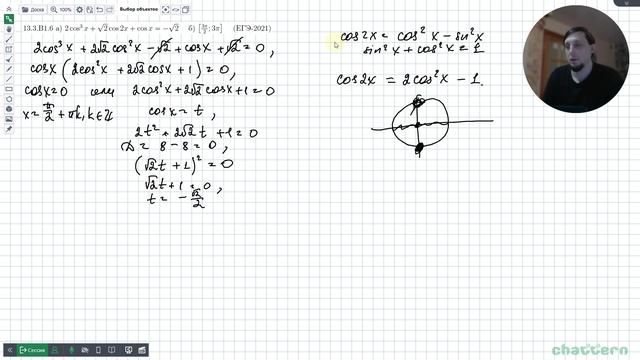 Доска
100%
Выбор объектов
13.3.B1.6 а) 2 cos³ x + √2 cos 2x + cos x = −√2 б) [3π/2; 3π] (ЕГЭ-2021)
2cos³x + 2√2 cos²x − √2 + cosx + √2 = 0,
cosx (2cos²x + 2√2 cosx + 1) = 0,
cosx = 0 или 2cos²x + 2√2 cosx + 1 = 0
x = π/2 + πk, k ∈ ℤ
cosx = t,
2t² + 2√2 t + 1 = 0
D = 8 − 8 = 0,
(√2t + 1)² = 0
√2t + 1 = 0,
t = − √2/2
cos2x = cos²x − sin²x
sin²x + cos²x = 1
cos2x = 2cos²x − 1.
Сессия
chattern